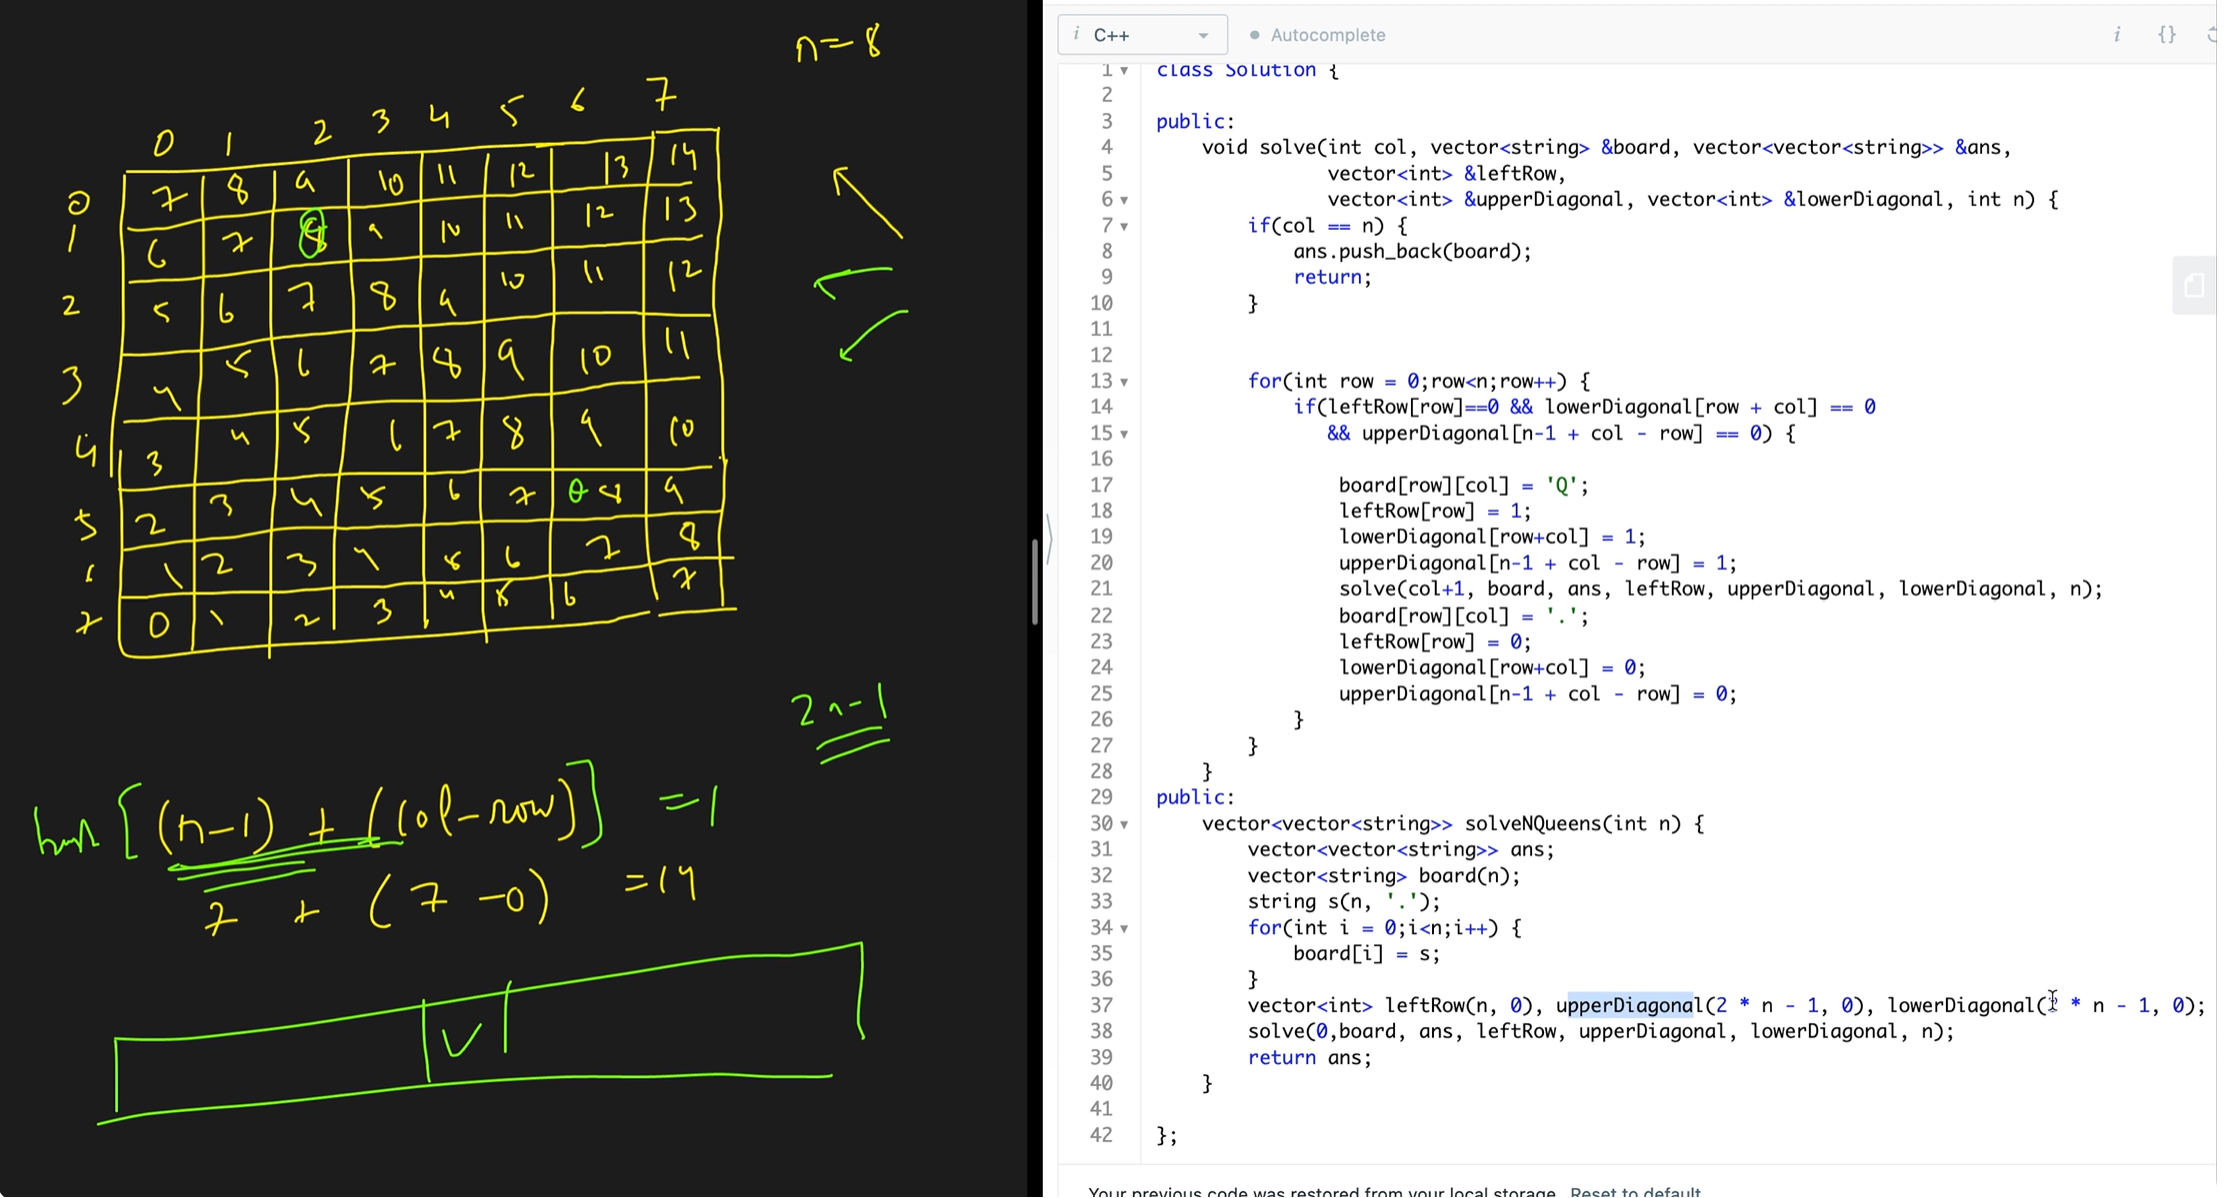 n=8
0 1 2 3 4 5 6 7
0 7 8 9 10 11 12 13 14
1 6 7 8 9 10 11 12 13
2 5 6 7 8 9 10 11 12
3 4 5 6 7 8 9 10 11
4 3 4 5 6 7 8 9 10
5 2 3 4 5 6 7 8 9
6 1 2 3 4 5 6 7 8
7 0 1 2 3 4 5 6 7
2n-1
hash [(n-1) + (col-row)] =1
7 + (7-0) =14
i C++ Autocomplete i {}
1 class Solution {
2
3 public:
4 void solve(int col, vector<string> &board, vector<vector<string>> &ans,
5 vector<int> &leftRow,
6 vector<int> &upperDiagonal, vector<int> &lowerDiagonal, int n) {
7 if(col == n) {
8 ans.push_back(board);
9 return;
10 }
11
12
13 for(int row = 0;row<n;row++) {
14 if(leftRow[row]==0 && lowerDiagonal[row + col] == 0
15 && upperDiagonal[n-1 + col - row] == 0) {
16
17 board[row][col] = 'Q';
18 leftRow[row] = 1;
19 lowerDiagonal[row+col] = 1;
20 upperDiagonal[n-1 + col - row] = 1;
21 solve(col+1, board, ans, leftRow, upperDiagonal, lowerDiagonal, n);
22 board[row][col] = '.';
23 leftRow[row] = 0;
24 lowerDiagonal[row+col] = 0;
25 upperDiagonal[n-1 + col - row] = 0;
26 }
27 }
28 }
29 public:
30 vector<vector<string>> solveNQueens(int n) {
31 vector<vector<string>> ans;
32 vector<string> board(n);
33 string s(n, '.');
34 for(int i = 0;i<n;i++) {
35 board[i] = s;
36 }
37 vector<int> leftRow(n, 0), upperDiagonal(2 * n - 1, 0), lowerDiagonal(2 * n - 1, 0);
38 solve(0,board, ans, leftRow, upperDiagonal, lowerDiagonal, n);
39 return ans;
40 }
41
42 };
Your previous code was restored from your local storage. Reset to default